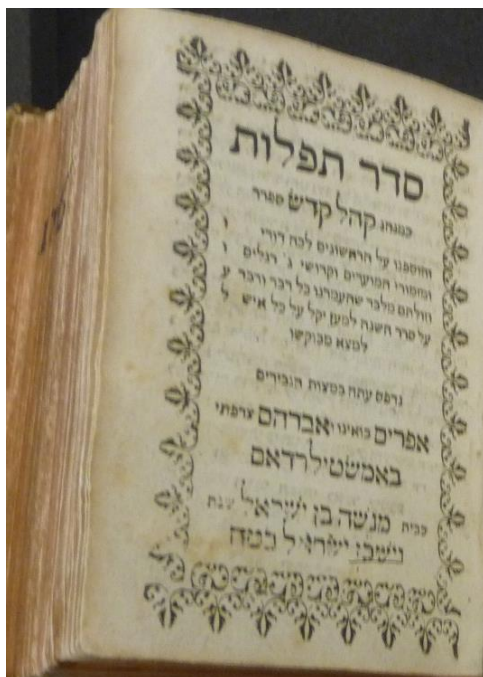 סדר תפלות
כמנהג קהל קדש ספרד
והוספנו על הראשונים לכה דודי
ומזמורי המועדים וקדושי ג׳ רגלים
וזולתם מלבד שהעמדנו כל דבר ודבר
על סדר השנה למען יקל על כל איש
למצא מבוקשו
נדפס עתה במצות הגבירים
אפרים בואינו ואברהם צרפתי
באמשטילרדאם
בבית מנשה בן ישראל שנת
וישכן ישראל בטח